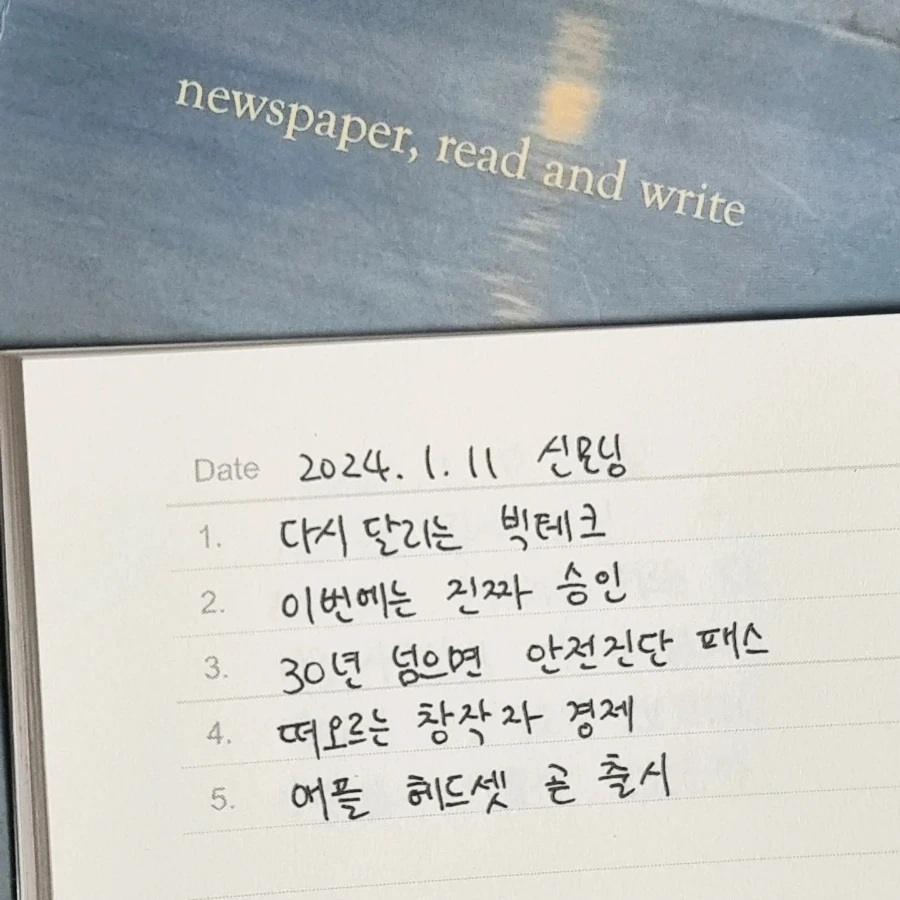 newspaper, read and write
Date 2024. 1. 11 신모닝
1. 다시 달리는 빅테크
2. 이번에는 진짜 승인
3. 30년 넘으면 안전진단 패스
4. 떠오르는 창작자 경제
5. 애플 헤드셋 곧 출시